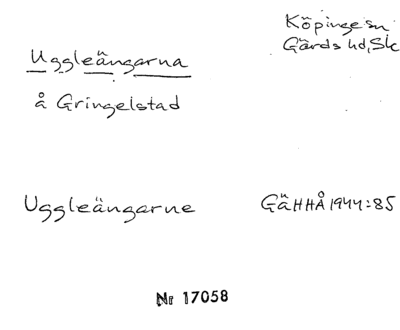 Köpinge sn
Gärds hd, Sk
Uggleängarna
å Gringelstad
Uggleängarne GäHHÅ 1944:85
Nr 17058